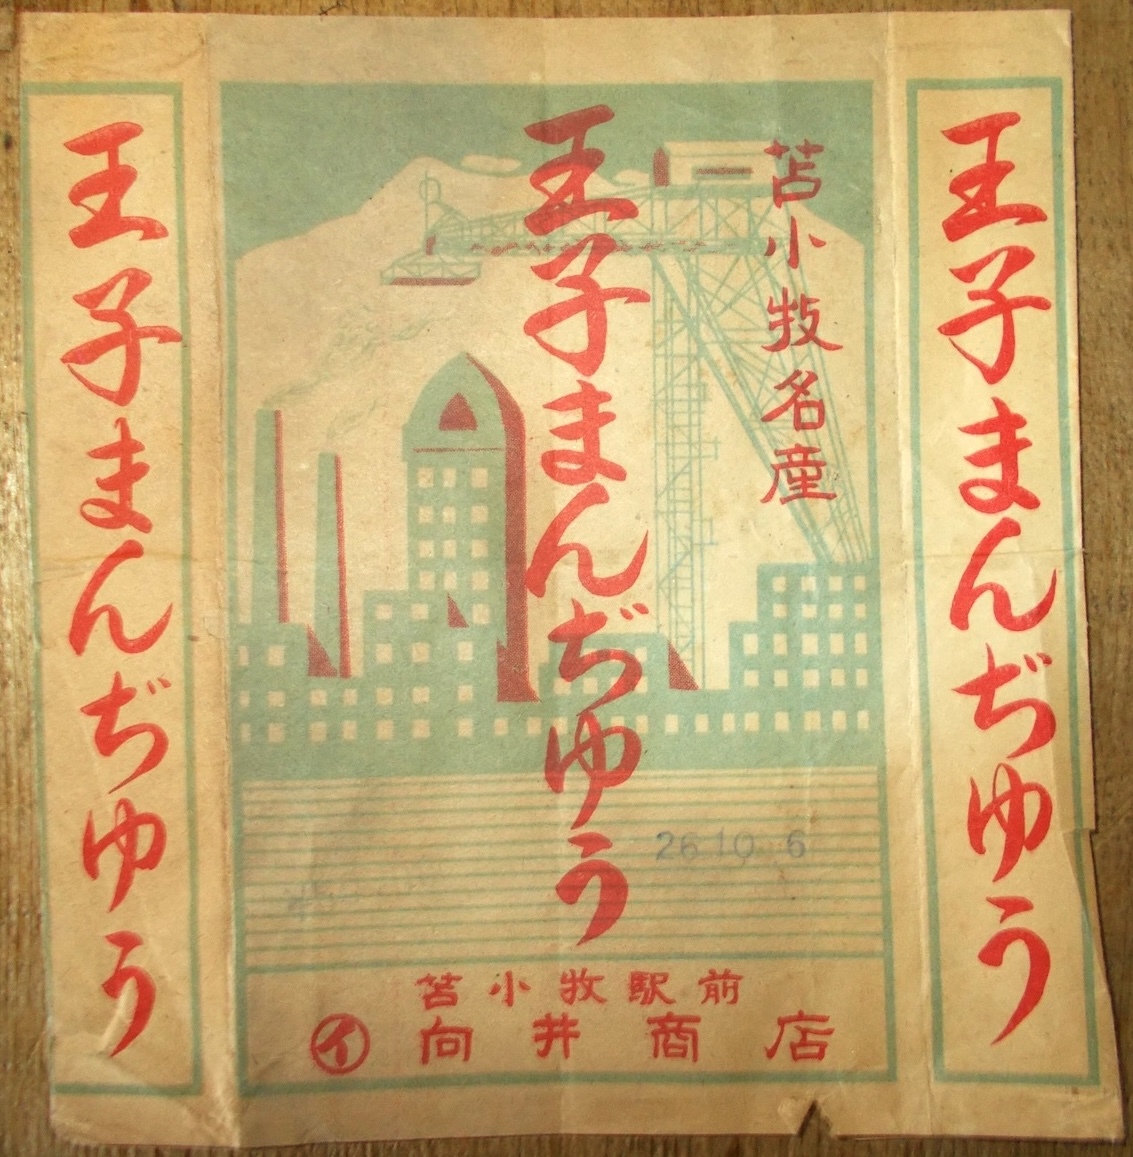 王子まんぢゆう
苫小牧名産
王子まんぢゆう
王子まんぢゆう
26 10 6
苫小牧駅前
イ 向井商店